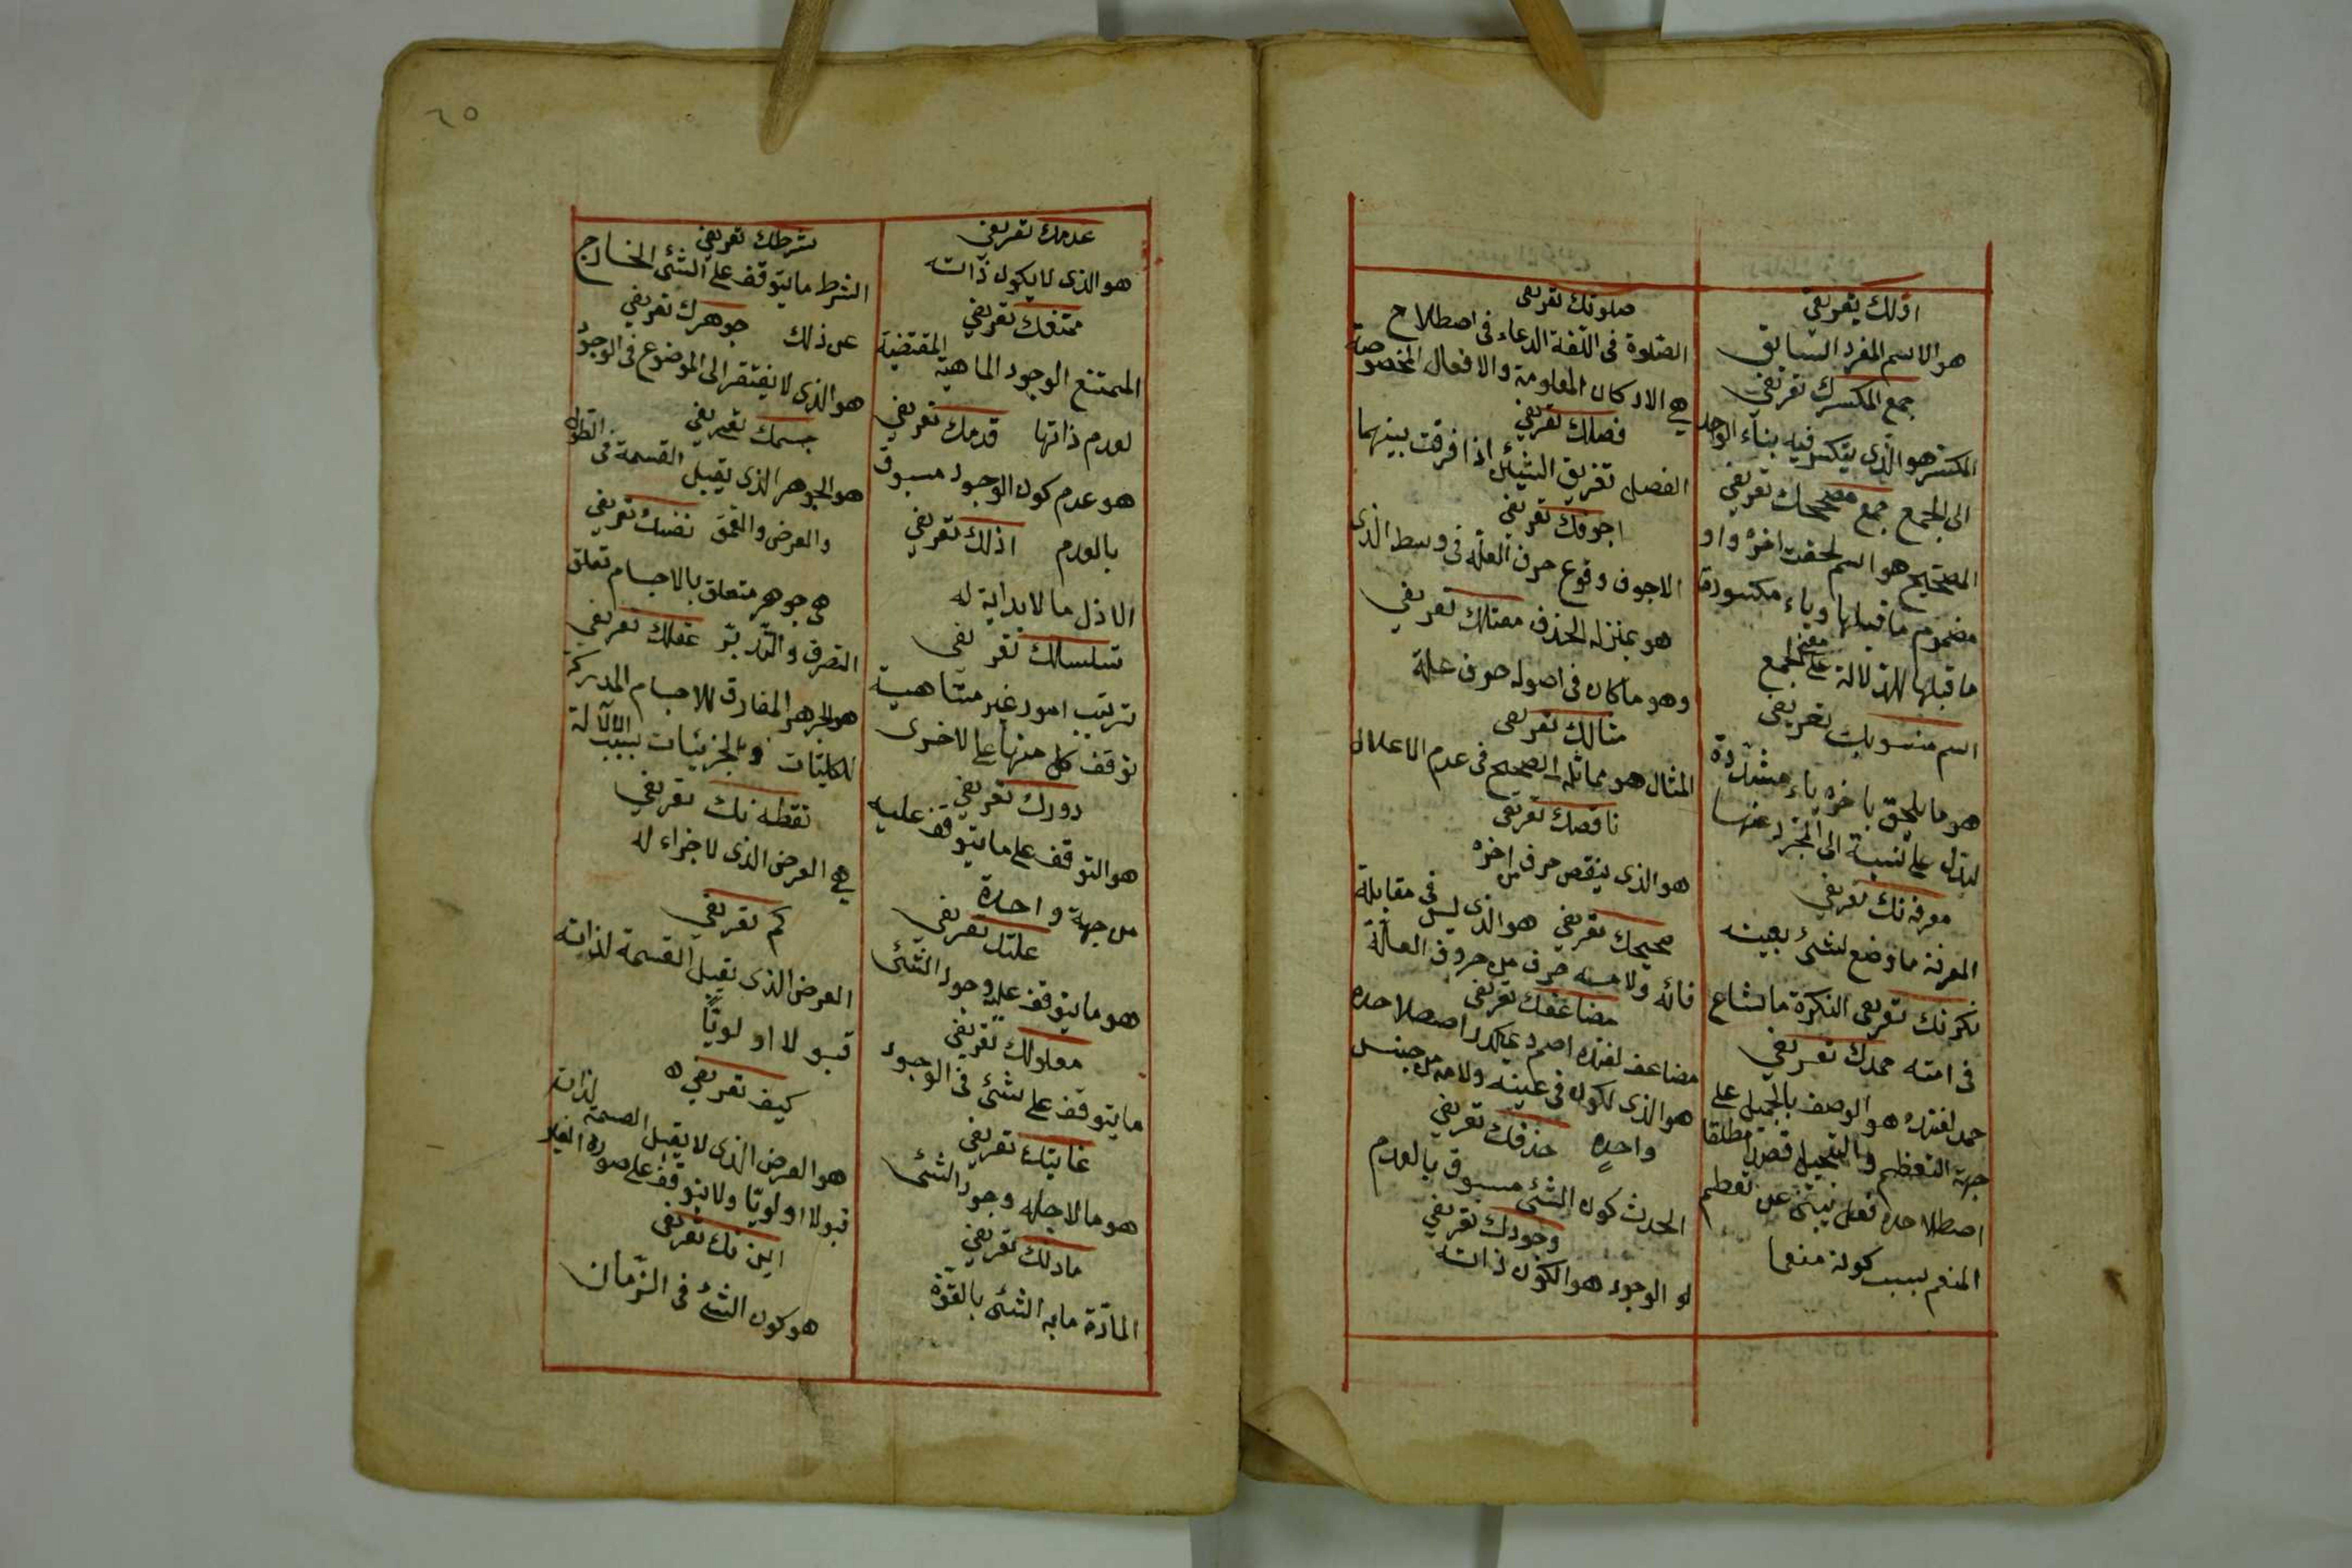 اولك تعريفى
هو الاسم المفرد السابق
جمع المكسرك تعريفى
المكسر هو الذى يتكسر فيه بناء الواحد
الى الجمع جمع مصححك تعريفى
المصحح هو اسم لحقت اخره واو
مضموم ما قبلها وياء مكسورة
ما قبلها للدلالة على معنى الجمع
اسم منسوبك تعريفى
هو ما يلحق باخره ياء مشددة
ليدل على نسبة الى المجرد عنها
معرفه نك تعريفى
المعرفة ما وضع لشئ بعينه
نكره نك تعريفى النكرة ما شاع
فى امته حمدك تعريفى
حمد لغتده هو الوصف بالجميل على
جهة التعظيم والتبجيل قصدا مطلقا
اصطلاحده فعل ينبئ عن تعظيم
المنعم بسبب كونه منعما
صلوتك تعريفى
الصلوة فى اللغة الدعاء فى اصطلاح
هى الاركان المعلومة والافعال المخصوصة
فصلك تعريفى
الفصل تفريق الشيئ اذا فرقت بينهما
اجوفك تعريفى
الاجوف وقوع حرف العله فى وسط الذى
هو بمنزله الحذف معتلك تعريفى
وهو ما كان فى اصوله حرف علة
مثالك تعريفى
المثال هو مماثله الصحيح فى عدم الاعلال
ناقصك تعريفى
هو الذى ينقص حرف من اخره
صحيحك تعريفى هو الذى ليس فى مقابلة
فائه ولامه حرف من حروف العلة
مضاعفك تعريفى
مضاعف لغتده اصم ديمكدر اصطلاحده
هو الذى يكون فى عينه ولامه من جنس
واحده حذفك تعريفى
الحدث كون الشئ مسبوق بالعدم
وجودك تعريفى
الوجود هو الكون ذاته
٦٥
عدمك تعريفى
هو الذى لا يكون ذاته
ممتنعك تعريفى
الممتنع الوجود الماهية المقتضية
لعدم ذاتها قدمك تعريفى
هو عدم كون الوجود مسبوق
بالعدم ازلك تعريفى
الازل ما لا بداية له
تسلسلك تعريفى
ترتيب امور غير متناهية
توقف كل منها على الاخرى
دورك تعريفى
هو التوقف على ما يتوقف عليه
من جهة واحدة
علتك تعريفى
هو ما يتوقف عليه وجود الشئ
معلولك تعريفى
ما يتوقف على شئ فى الوجود
غايتك تعريفى
هو ما لاجله وجود الشئ
مادتك تعريفى
المادة ما به الشئ بالقوة
شرطك تعريفى
الشرط ما يتوقف على الشئ الخارج
عن ذلك جوهرك تعريفى
هو الذى لا يفتقر الى الموضوع فى الوجود
جسمك تعريفى
هو الجوهر الذى يقبل القسمة فى الطول
والعرض والعمق نفسك تعريفى
هى جوهر متعلق بالاجسام تعلق
التصرف والتدبر عقلك تعريفى
هو الجوهر المفارق للاجسام المدركة
للكليات والجزئيات بسبب الالة
نقطه نك تعريفى
هى العرض الذى لا جزاء له
كم تعريفى
العرض الذى يقبل القسمة لذاته
قبولا اوليا
كيف تعريفى
هو العرض الذى لا يقبل القسمة لذاته
قبولا اوليا ولا يتوقف على صوره الغير
اين نك تعريفى
هو كون الشئ فى الزمان